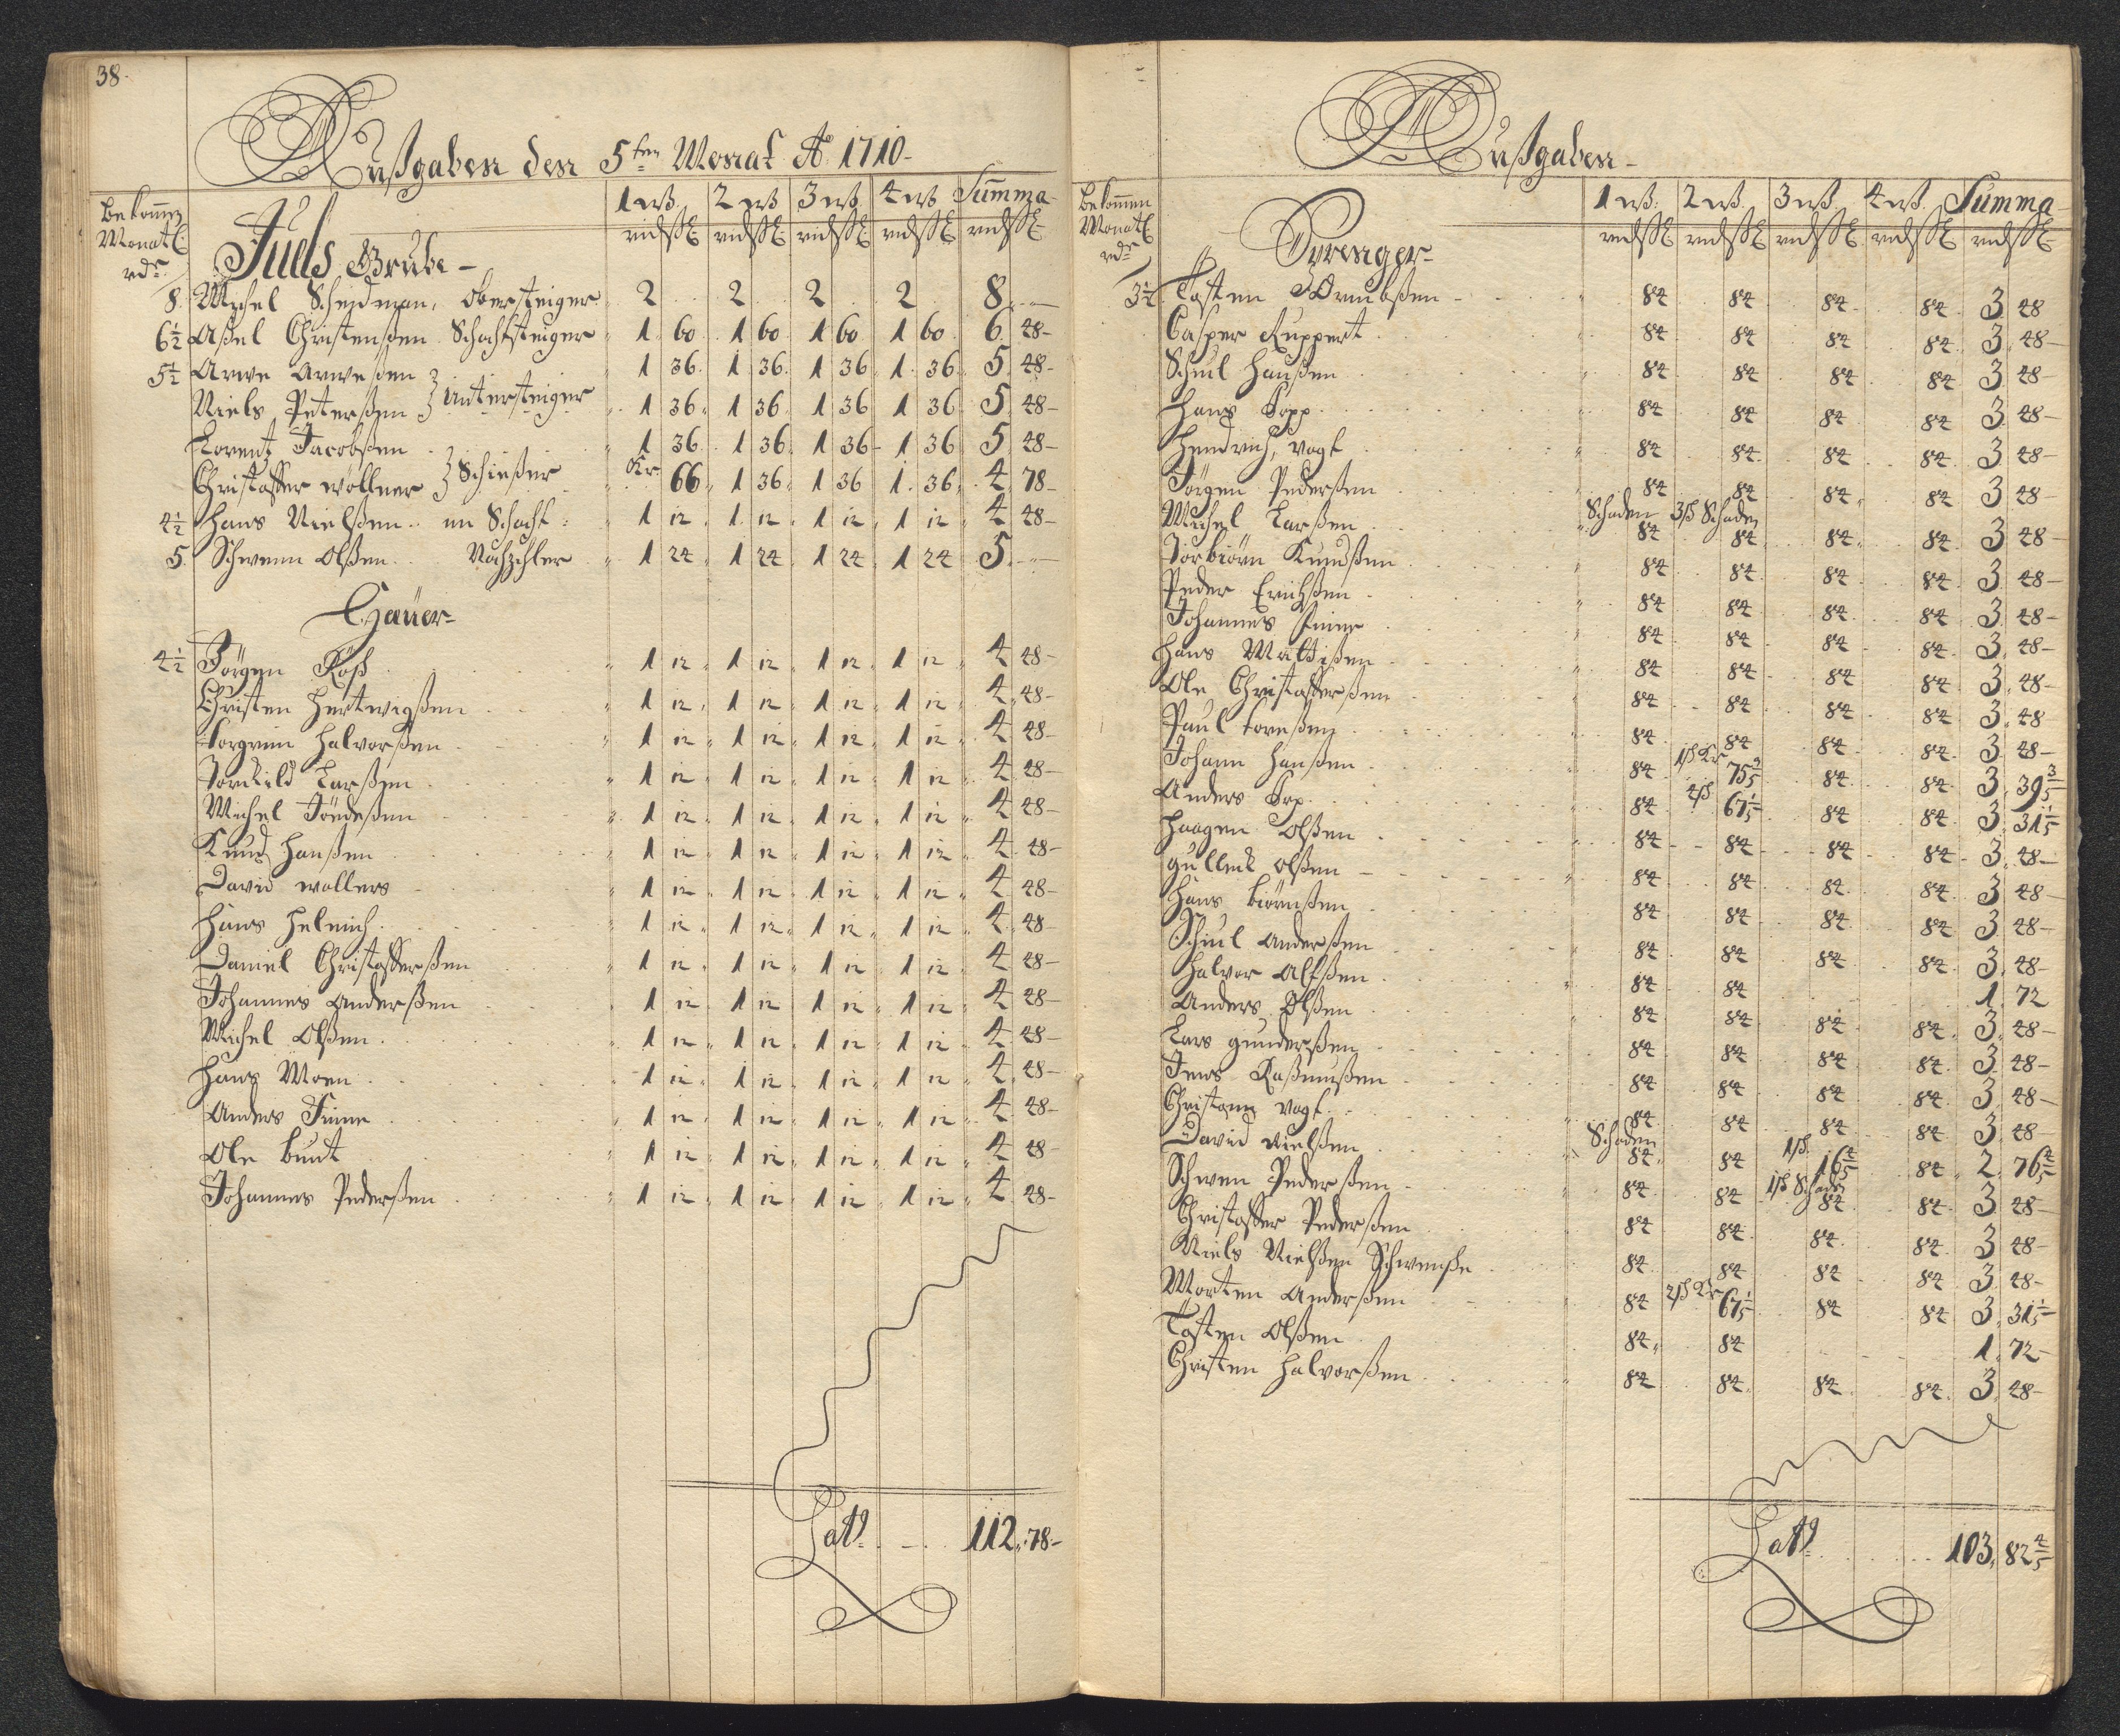 38.
Außgaben den 5ten Monat Ao 1710-
Bekommen Monatl. rdr.
1 wß. 2 wß 3 wß 4 wß Summa
Juels Grube -
8. Michel Scheidman, Obersteiger 2 2 2 2 8 -
6½ Aßel Christensßen Schachtsteiger 1 60 1 60 1 60 1 60 6 48-
5½ Arwe Arweßen } Untersteiger 1 36. 1 36. 1 36 1. 36 5 48-
Niels Peterßen 1 36 1 36 1 36 1 36 5 48-
Lorentz Jacobßen } Schießer 1 36 1 36 1 36 1 36 5 48-
Christoffer Wöllner Kr. 66 1 36 1 36 1. 36 4 78-
4½ Hans Nielßen im Schacht 1 12 1 12 1 12 1 12 4 48-
5. Schwenn Olßen Nachzehler 1 24 1 24 1 24 1 24 5 -
Hauer-
4½ Jörgen Röß 1 12 1 12 1 12 1 12 4 48-
Christen Hertwigßen 1 12 1 12 1 12 1 12 4 48-
Torgrim Halvorßen 1 12 1 12 1 12 1 12 4 48-
Tornkild Larßen 1 12 1 12 1 12 1 12 4 48-
Michel Jöndeßen 1 12 1 12 1 12 1 12 4 48-
Knud Hanßen 1 12 1 12 1 12 1 12 4 48-
David Wollers 1 12 1 12 1 12 1 12 4 48-
Hans Helmich 1 12 1 12 1 12 1 12 4 48
Daniel Christofferßen 1 12 1 12 1 12 1 12 4 48-
Johannes Anderßen 1 12 1 12 1 12 1 12 4 48-
Michel Olßen 1 12 1 12 1 12 1 12 4 48-
Hans Moen 1 12 1 12 1 12 1 12 4 48-
Anders Finne 1 12 1 12 1 12 1 12 4 48-
Ole Bunt 1 12 1 12 1 12 1 12 4 48-
Johannes Pederßen 1 12 1 12 1 12 1 12 4 48-
Lat. 112. 78-
Außgaben-
Bekommen Monatl. rdr
1 wß. 2 wß. 3 wß 4 wß Summa
Sprenger-
3½ Tosten Ormbßen 84 84 84 84 3 48
Casper Ruppert 84 84 84 84 3 48-
Schiul Hanßen 84 84 84 84 3 48-
Hans Topp 84 84 84 84 3 48-
Hendrich Vogt 84 84 84 84 3 48-
Jörgen Pederßen 84 84 84 84 3 48-
Michel Larßen Schaden 84 3ß Schaden 84 84 84 3 48-
Torbiörn Knudßen 84 84 84 84 3 48-
Peder Erichßen 84 84 84 84 3 48-
Johannes 84 84 84 84 3 48-
Hans Maltißen 84 84 84 84 3 48-
Ole Christofferßen 84 84 84 84 3 48
Paul Toreßen 84 84 84 84 3 48-
Johann Hanßen 84 1ß Kr 75 3/5 84 84 3 39 3/5
Anders Top 84 2ß 67 1/5 84 84 3 31 1/5
Haagen Olßen 84 84 84 84 3 48-
Gulleck Olßen 84 84 84 84 3 48-
Hans Biörnßen 84 84 84 84 3 48-
Schiul Anderßen 84 84 84 84 3 48-
Halvor Alfßen 84 84 1. 72
Anders Olßen 84 84 84 84 3 48-
Lars Gunderßen 84 84 84 84 3 48-
Jens Raßmußen 84 84 84 84 3 48-
Christian Vogt 84 84 84 84 3 48-
David Nielßen Schaden 84 84 1ß 16 4/5 84 2 76 4/5
Schwen Pederßen 84 84 1ß Schaden 84 84 3 48-
Christoffer Pederßen 84 84 84 84 3 48-
Niels Nielßen Schwenße 84 84 84 84 3 48-
Morten Anderßen 84 2ß Kr 67 1/5 84 84 3 31 1/5
Tosten Olßen 84 84 1. 72-
Christen Halvorßen 84 84 84 84 3. 48-
Lat. 103. 82 4/5